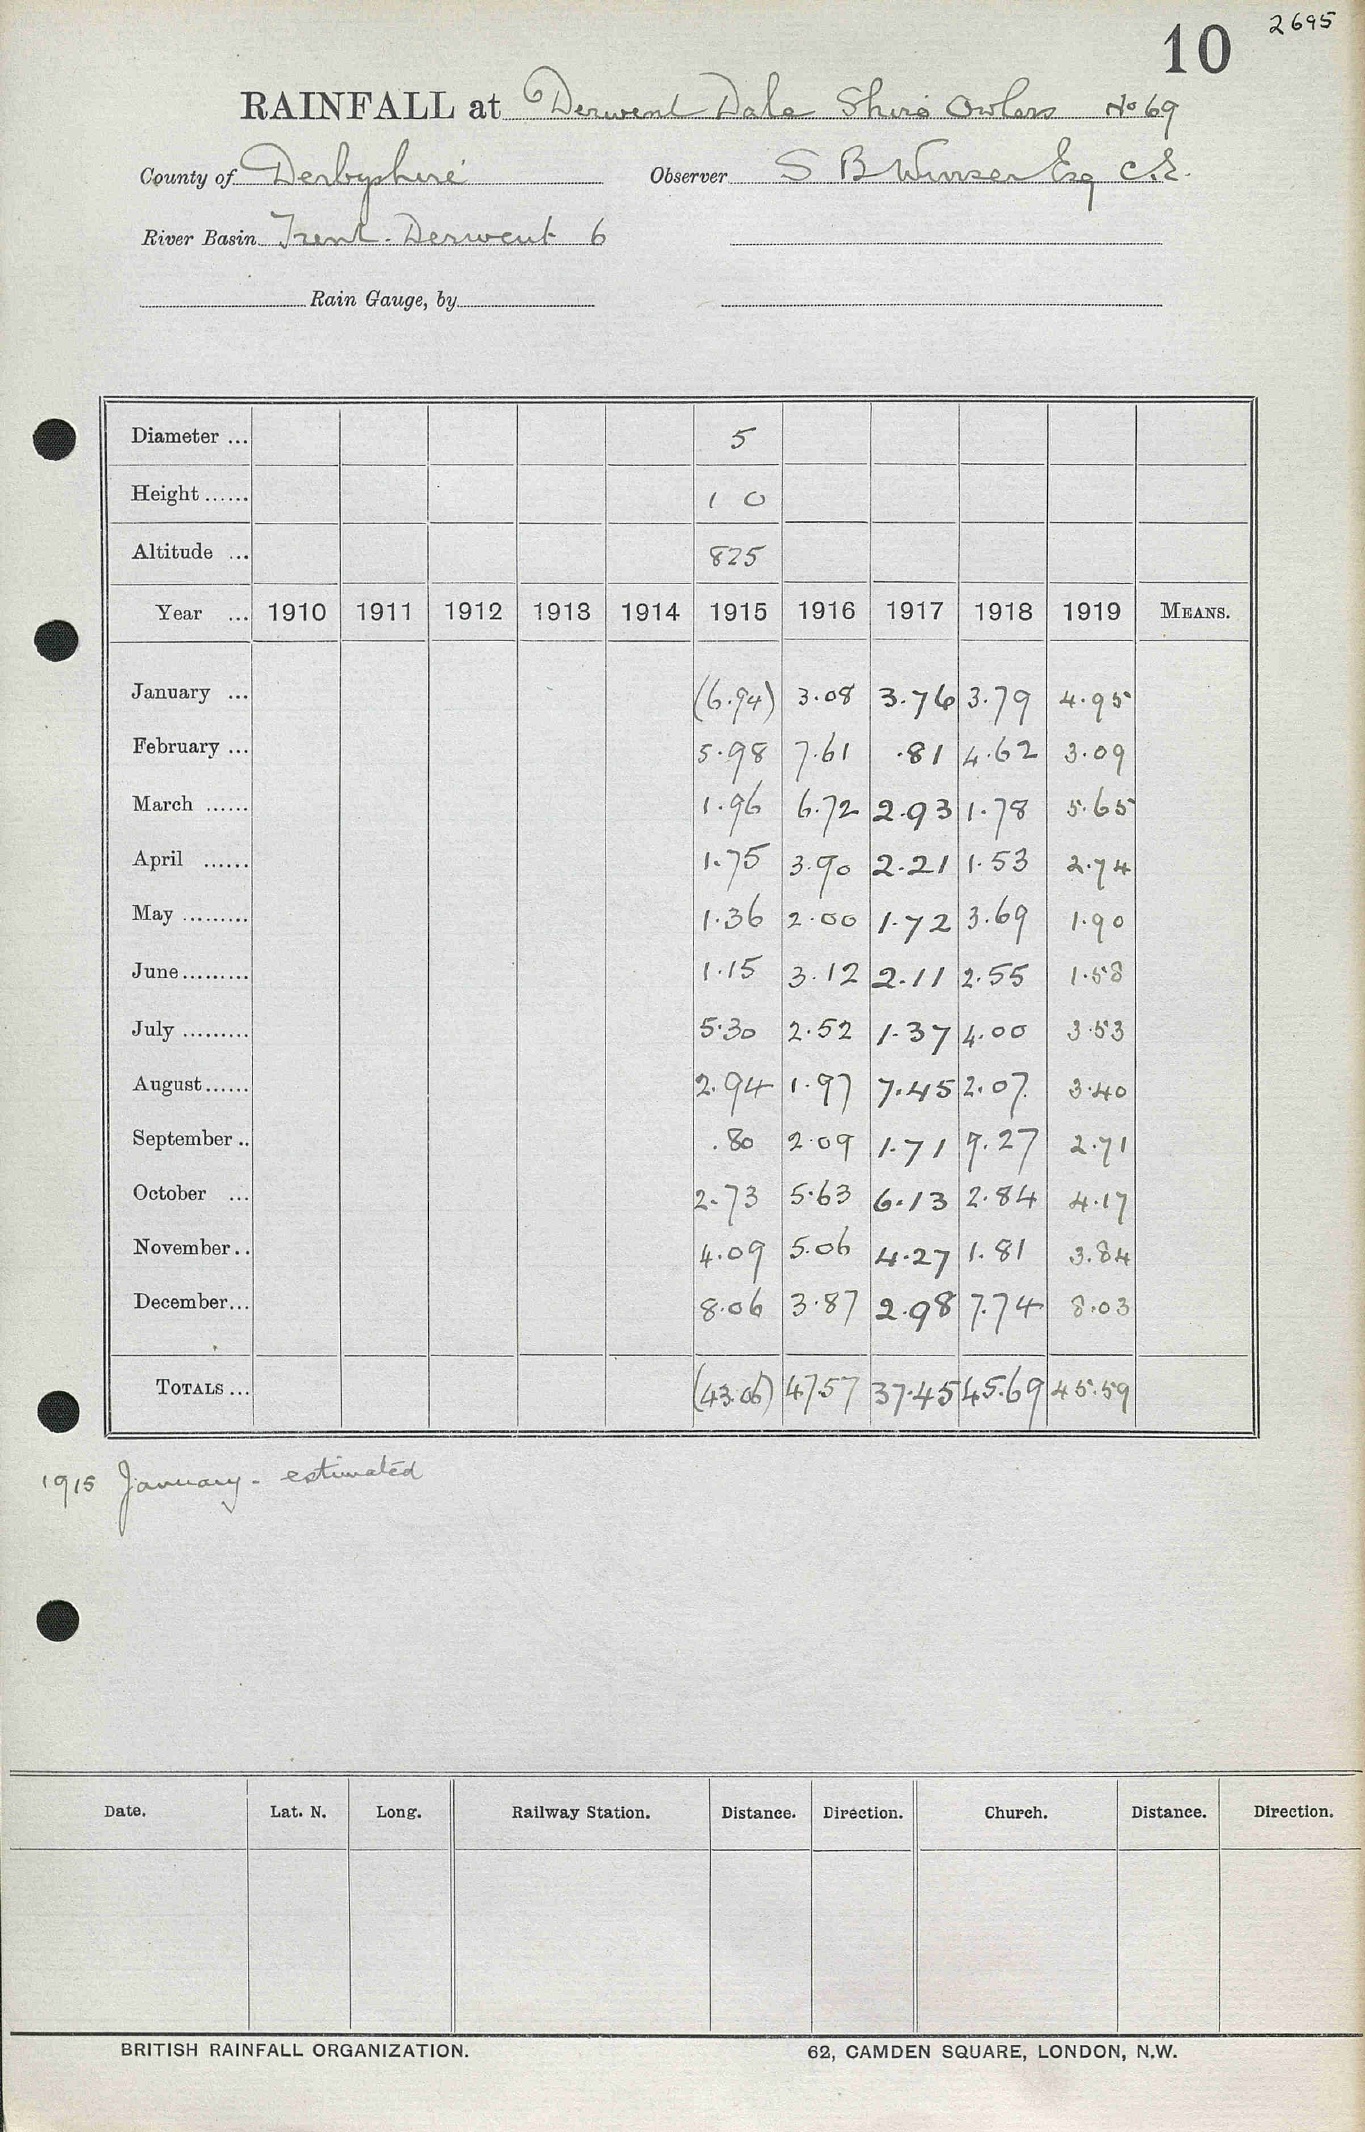 2695
10
RAINFALL at Derwent Dale Shire Owlers No 69
County of Derbyshire Observer S B Winser Esq C.E.
River Basin Trent. Derwent 6
Rain Gauge, by
Diameter ... 5
Height ...... 1 0
Altitude ... 825
Year ... 1910 1911 1912 1913 1914 1915 1916 1917 1918 1919 MEANS.
January ... (6.94) 3.08 3.76 3.79 4.95
February ... 5.98 7.61 .81 4.62 3.09
March ...... 1.96 6.72 2.93 1.78 5.65
April ...... 1.75 3.90 2.21 1.53 2.74
May ......... 1.36 2.00 1.72 3.69 1.90
June......... 1.15 3.12 2.11 2.55 1.58
July ......... 5.30 2.52 1.37 4.00 3.53
August...... 2.94 1.97 7.45 2.07 3.40
September .. .80 2.09 1.71 9.27 2.71
October ... 2.73 5.63 6.13 2.84 4.17
November .. 4.09 5.06 4.27 1.81 3.84
December... 8.06 3.87 2.98 7.74 8.03
TOTALS ... (43.06) 47.57 37.45 45.69 45.59
1915 January - estimated
Date. Lat. N. Long. Railway Station. Distance. Direction. Church. Distance. Direction.
BRITISH RAINFALL ORGANIZATION. 62, CAMDEN SQUARE, LONDON, N.W.